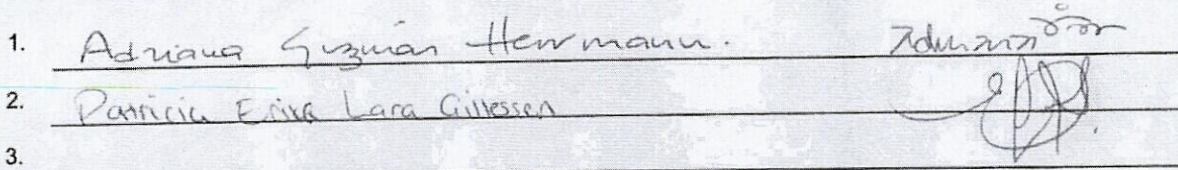 1. Adriana Guzmán Herrmann.
2. Patricia Erika Lara Gillessen
3.